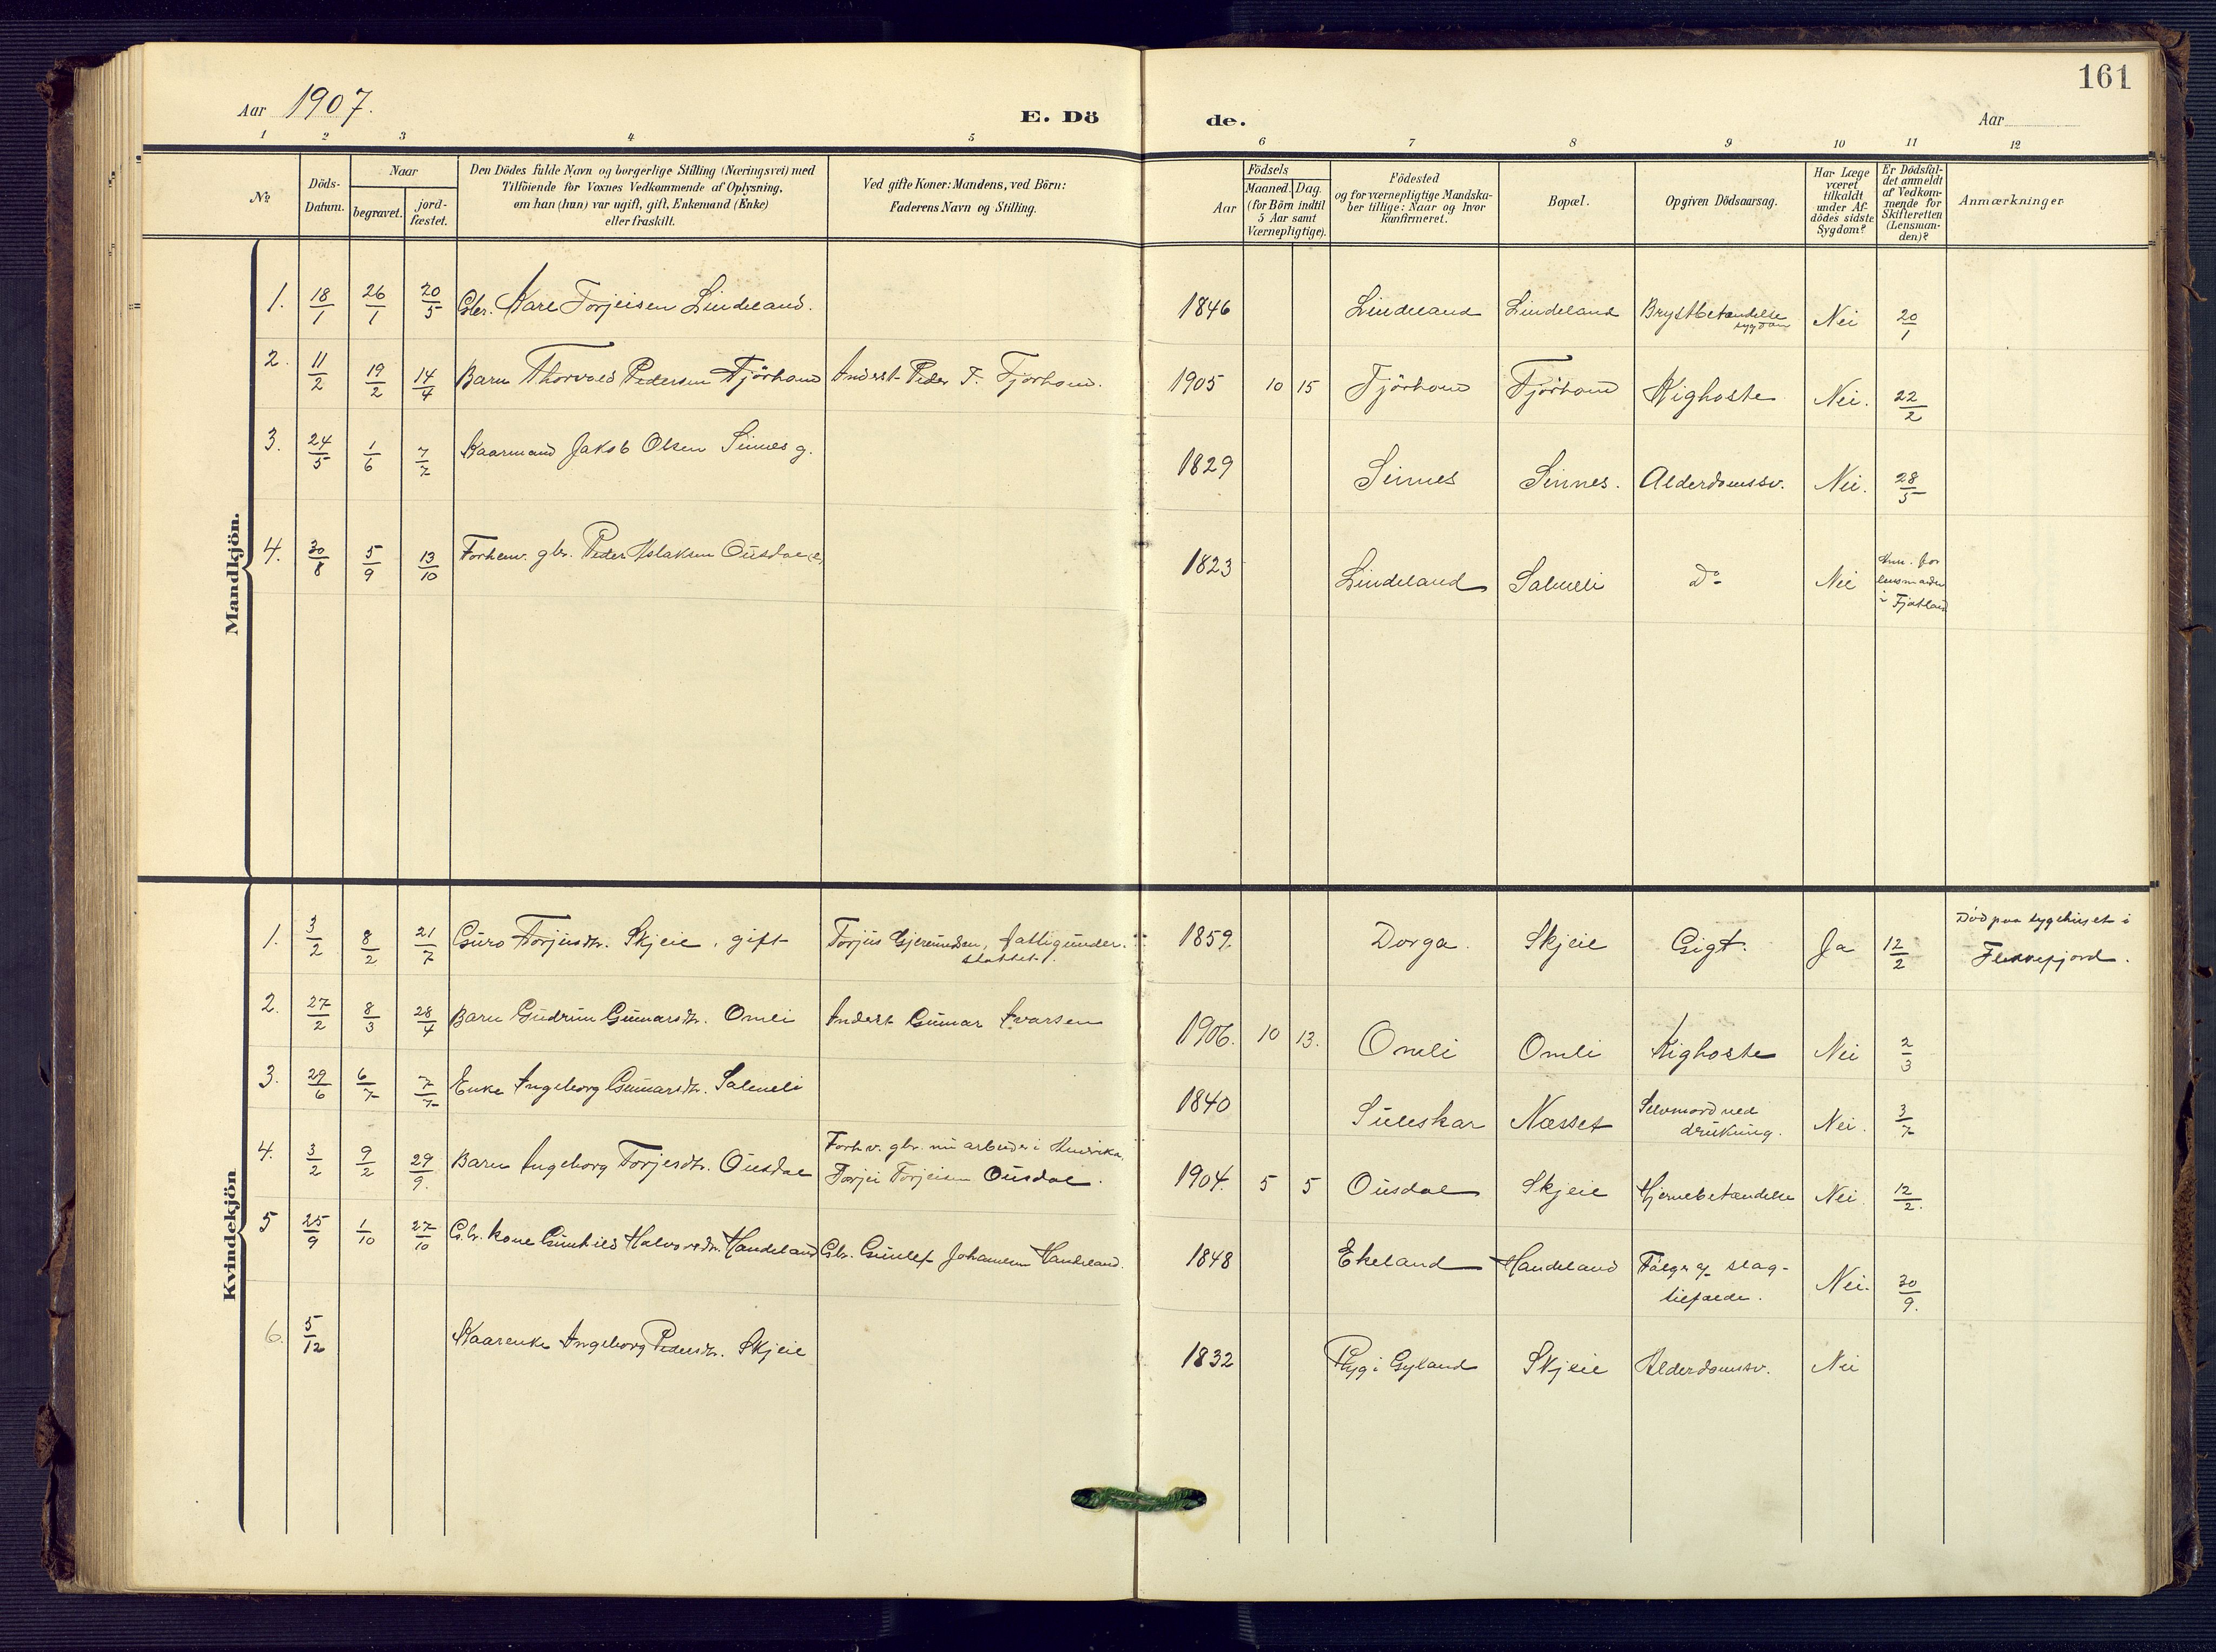 161
Aar 1907.
E. Dö de.
Aar
1 2 3 4 5 6 7 8 9 10 11 12
№
Döds-
Datum.
Naar
begravet.
jord-
fæstet.
Den Dödes fulde Navn og borgerlige Stilling (Næringsvei) med
Tilföiende for Voxnes Vedkommende af Oplysning,
om han (hun) var ugift, gift, Enkemand (Enke)
eller fraskilt.
Ved gifte Koner: Mandens, ved Börn:
Faderens Navn og Stilling.
Födsels
Aar
Maaned. Dag.
(for Börn indtil
5 Aar samt
Værnepligtige).
Födested
og for værnepligtige Mandska-
ber tillige: Naar og hvor
konfirmeret.
Bopæl.
Opgiven Dödsaarsag.
Har Læge
været
tilkaldt
under Af-
dödes sidste
Sygdom?
Er Dödsfal-
det anmeldt
af Vedkom-
mende for
Skifteretten
(Lensman-
den)?
Anmærkninger
Mandkjön.
1. 18/1 26/1 20/5 Gbr. Kare Torjeisen Lindeland. 1846 Lindeland Lindeland Brystbetændelse Nei 20/1
2. 11/2 19/2 14/4 Barn Thorvald Pedersen Tjörhom Inderst Peder T. Tjorhom. 1905 10 15 Tjörhom Tjörhom Kighoste Nei. 22/2
3. 24/5 1/6 7/7 Kaarmand Jakob Olsen Sinnes g. 1829 Sinnes Sinnes. Alderdomssv. Nei. 28/5
4. 30/8 5/9 13/10 Forhenv. gbr. Peder Aslaksen Ousdal 1823 Lindeland Salmeli do Nei Anm. for
lensmanden
i Fjotland
Kvindekjön
1. 3/2 8/2 21/7 Guro Torjusdtr. Skjeie, gift Torjus Gjermundsen, fattigunder-
støttet. 1859. Dorga. Skjeie Gigt. Ja 12/2 Död paa sygehuset i
Flekkefjord.
2. 27/2 8/3 28/4 Barn Gudrun Gunnarsdtr. Omli Inderst Gunnar Ivarsen 1906. 10 13. Omli Omli Kighoste Nei 2/3
3. 29/6 6/7 7/7 Enke Ingeborg Gunnarsdtr. Salmeli 1840 Suleskar Næsset Selvmord ved
drukning. Nei. 3/7
4. 3/2 9/2 29/9. Barn Ingeborg Torjesdtr. Ousdal Forhv. gbr. nu arbeider i Amerika
Torjei Torjeisen Ousdal. 1904. 5 5 Ousdal Skjeie Hjernebetændelse Nei 12/2.
5 25/9 1/10 27/10 Gbr. kone Gunhild Halvorsdtr. Handeland Gbr. Gunlef Johannesen Handeland. 1848 Ekeland Handeland Fölger af slag-
tilfælde. Nei. 30/9.
6. 5/12 Kaarenke Ingeborg Pedersdtr. Skjeie 1832 Ryg i Gyland Skjeie Alderdomssv. Nei